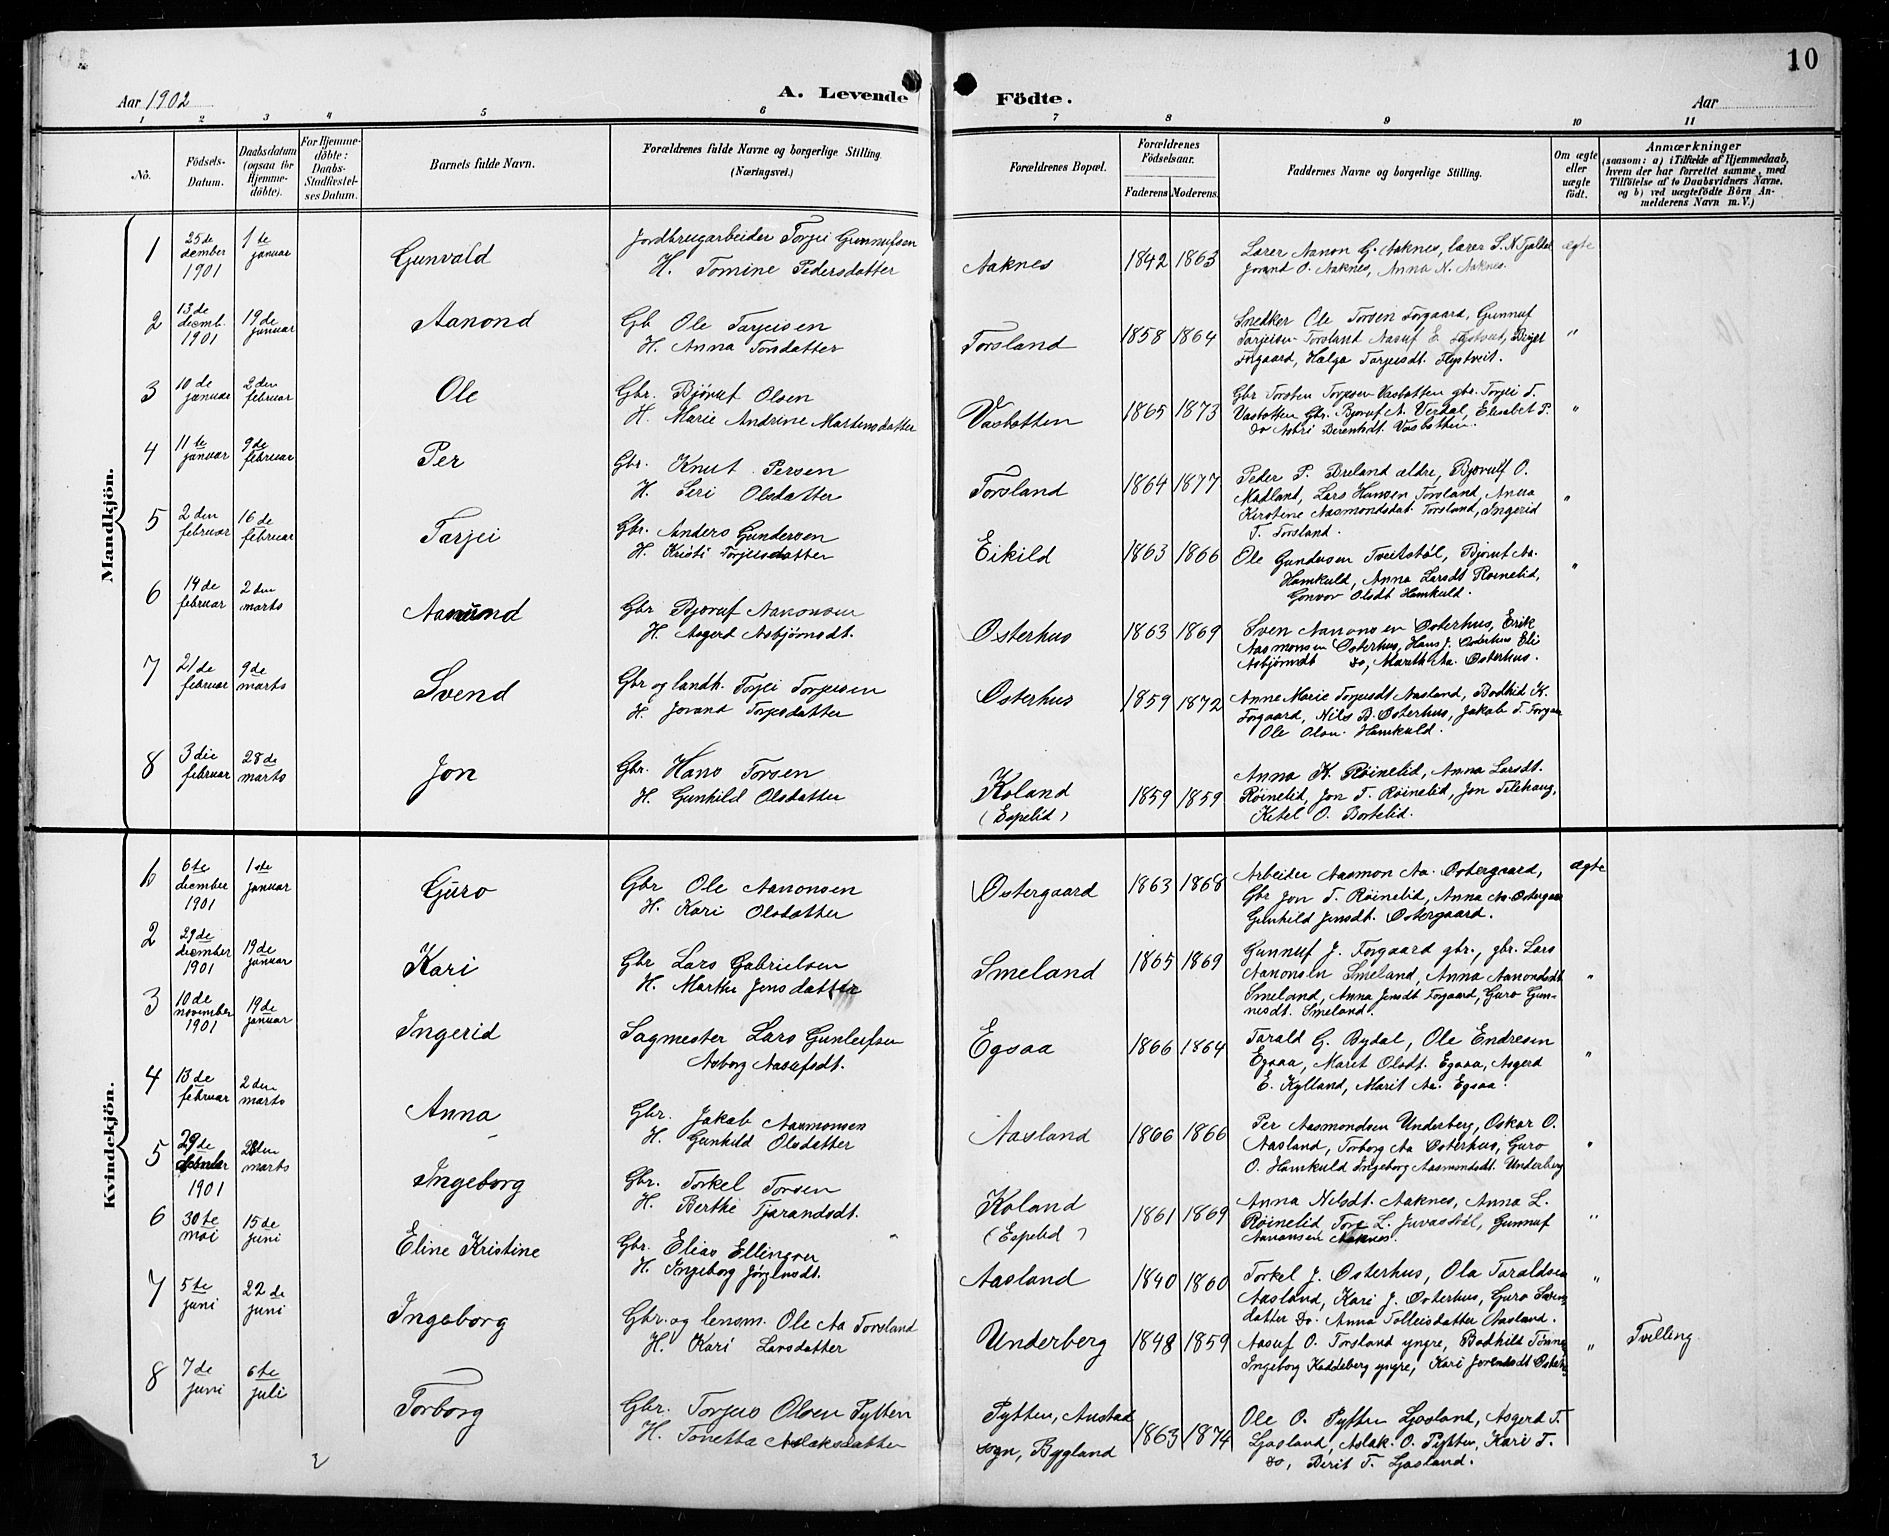 10
Aar 1902
A. Levende
Födte.
Aar
1 2 3 4 5 6 7 8 9 10 11
No.
Födsels-Datum.
Daabsdatum (ogsaa for Hjemme-döbte).
For Hjemme-döbte: Daabs-Stadfæstel-ses Datum.
Barnets fulde Navn.
Forældrenes fulde Navne og borgerlige Stilling. (Næringsvei.)
Forældrenes Bopæl.
Forældrenes Födselsaar.
Faderens. Moderens.
Faddernes Navne og borgerlige Stilling.
Om ægte eller uægte födt.
Anmærkninger
(saasom: a) i Tilfælde af Hjemmedaab,
hvem der har forrettet samme, med
Tilföielse af to Daabsvidners Navne,
og b) ved uægtefödte Börn An-
melderens Navn m. V.)
Mandkjön.
1 25de dember 1901 1te januar Gunvald
Jordbrugarbeider Torjei Gunnufsen
H. Tomine Pedersdatter
Aaknes 1842 1863
Lærer Aanon G. Aaknes, lærer S. N. Fjaldal
Jorand O. Aaknes, Anna N. Aaknes.
ægte
2 13de decemb. 1901 19de januar Aanond
Gb Ole Tarjeisen
H. Anna Torsdatter
Torsland 1858 1864
Snedker Ole Torsen Forgaard, Gunnuf
Tarjeisen Torsland Aasuf E. Flystveit, Birjit
Forgaard, Hælga Tarjeisdt. Flystveit.
"
3 10de januar 2den februar Ole
Gbr. Bjøruf Olsen
H. Marie Andrine Martensdatter
Vasbotten 1865 1873
Gbr Torsten Torjesen Vasbotten gbr. Torjei T.
Vasbotten Gbr. Bjoruf A. Verdal, Elisabet P.
Do Astri Berentsdt. Vasbotten.
"
4 11te januar 9de februar Per
Gbr. Knut Persen
H. Seri Olsdatter
Torsland 1864 1877
Peder P. Breland ældre, Bjørulf O.
Madland, Lars Hansen Torsland, Anna
Kirstene Aasmondsdat. Torsland, Ingerid
T. Torsland.
"
5 2den februar 16de februar Tarjei
Gbr. Anders Gundersen
H. Kristi Torjeisdatter
Eikild 1863 1866
Ole Gundersen Tveitstøl, Bjoruf Aa.
Hamkuld, Anna Larsdt Røinelid,
Gonvor Olsdt Hamkuld.
"
6 14de februar 2den marts Aamund
Gbr Bjøruf Aanonsen
H. Asgerd Asbjørnsdt.
Osterhus 1863 1869
Sven Aanonsen Osterhus, Erik
Aasmonsen Osterhus, Hans J. Osterhus Eli
Asbjørnsdt Do, Marith Aa. Osterhus.
7 21de februar 9de marts Svend
Gbr og landh. Torjei Torjusen
H. Jorand Torjesdatter
Osterhus 1859 1872
Anne Marie Torjusdt Aasland, Bodhild K.
Forgaard, Nils B. Osterhus, Jakob T. Forgaa
Ole Olsen Hamkuld.
8 3die februar 28de marts Jon
Gbr. Hans Torsen
H. Gunhild Olsdatter
Koland (Espelid) 1859 1859
Anna K. Røinelid, Anna Larsdt.
Røinelid, Jon T. Røinelid, Jon Tilehaug,
Ketel O. Bortelid.
Kvindekjön.
1 6te decmber 1901 1ste januar Guro
Gbr Ole Aanonsen
H. Kari Olsdatter
Ostergaard 1863 1868
Arbeider Aasmon Aa. Ostergaard,
Gbr Jon T. Røinelid, Anna Aa. Ostergaa
Gunhild Jensdt. Ostergaard.
ægte
2 29de december 1901 19de januar Kari
Gbr Lars Gabrielsen
H. Marthe Jensdatter
Smeland 1865 1869
Gunnuf J. Forgaard gbr., gbr. Lars
Aanonsen Smeland, Anna Aanondsdt
Smeland, Anna Jensdt Forgaard, Guro Gun-
nesdt. Smeland.
"
3 10de november 1901 19de januar Ingerid
Sagmester Lars Gunleifsen
Asborg Aasufsdt.
Egsaa 1866 1864
Tarald G. Bydal, Ole Endresen
Egsaa, Marit Olsdt. Egsaa, Asgerd
E. Kylland, Marit Aa. Egsaa.
"
4 13de februar 2den marts Anna
Gbr. Jakob Aasmonsen
H. Gunhild Olsdatter
Aasland 1866 1866
Per Aasmondsen Underberg, Oskar O.
Aasland, Torborg Aa Osterhus, Guro
O. Hamkuld Ingeborg Aasmondsdt. Underberg
"
5 29de 1901 28den marts Ingeborg
Gbr. Torkel Torsen
H. Berthe Tjarandsdt.
Koland (Espelid) 1861 1869
Anna Nilsdt. Aaknes, Anna L.
Røinelid, Tore L. Juvastøl, Gunnuf
Aanonsen Aaknes.
"
6 30te mai 15de juni Eline Kristine
Gbr. Elias Ellingsen
H. Ingeborg Jørgensdt.
Aasland 1840 1860
Torkel J. Osterhus, Ola Taraldsen
Aasland, Kari J. Osterhus, Guro Sven-
datter Do. Anna Tolleisdatter Aasland.
"
7 5te juni 22de juni Ingeborg
Gbr. og lensm. Ole Aa Torsland
H. Kari Larsdatter
Underberg 1848 1859
Aasuf O. Torsland yngre, Bodhild Tønne
Ingeborg Kaddeberg yngre, Kari
" Tvilling.
8 7de juni 6te juli Torborg
Gbr. Torjus Olsen Pytten
H. Tonetta Aslaksdatter
Pytten, Austad
sogn, Bygland 1863 1874
Ole O. Pytten Ljosland, Asgerd T.
Ljosland, Aslak O. Pytten, Kari T.
Do, Berit T. Ljosland.
2